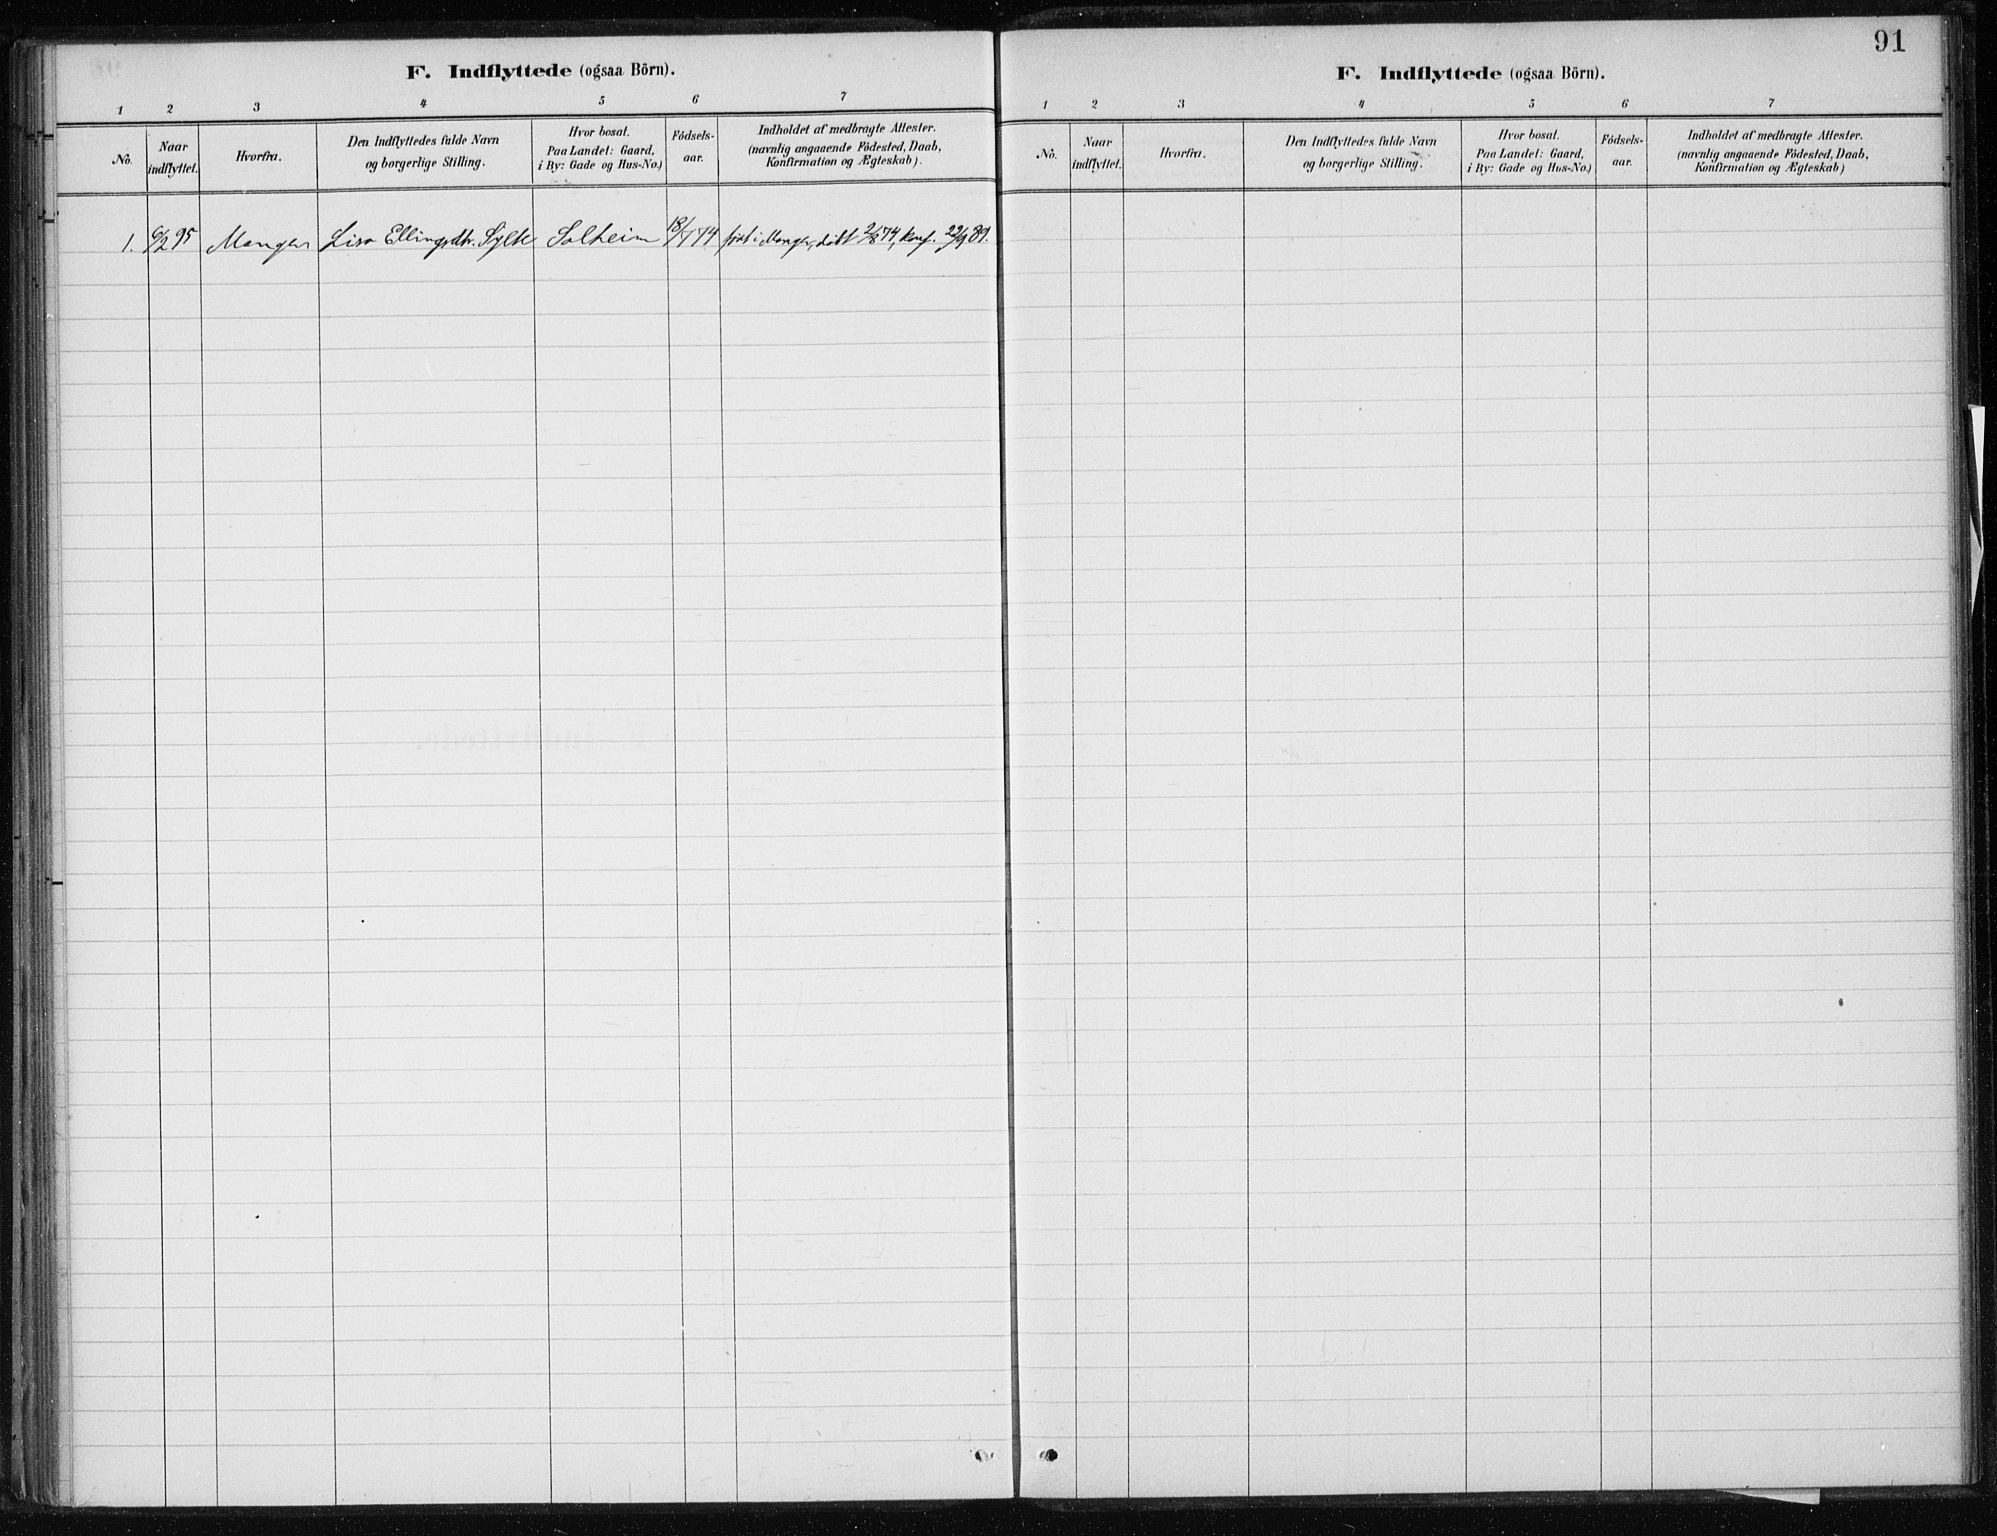 F. Indflyttede (ogsaa Börn).
1 2 3 4 5 6 7
No. Naar indflyttet. Hvorfra. Den Indflyttedes fulde Navn og borgerlige Stilling. Hvor bosat. Paa Landet: Gaard, i By: Gade og Hus-No.) Födsels-aar. Indholdet af medbragte Attester. (navnlig angaaende Födested, Daab, Konfirmation og Ægteskab).
1. 6/2 95 Manger Lisa Ellingsdtr. Sylte Solheim 18/7 74 föd i Manger, döbt 2/8 74, konf. 22/9 89.
91
F. Indflyttede (ogsaa Börn).
1 2 3 4 5 6 7
No. Naar indflyttet. Hvorfra. Den Indflyttedes fulde Navn og borgerlige Stilling. Hvor bosat. Paa Landet: Gaard, i By: Gade og Hus-No.) Födsels-aar. Indholdet af medbragte Attester. (navnlig angaaende Födested, Daab, Konfirmation og Ægteskab)